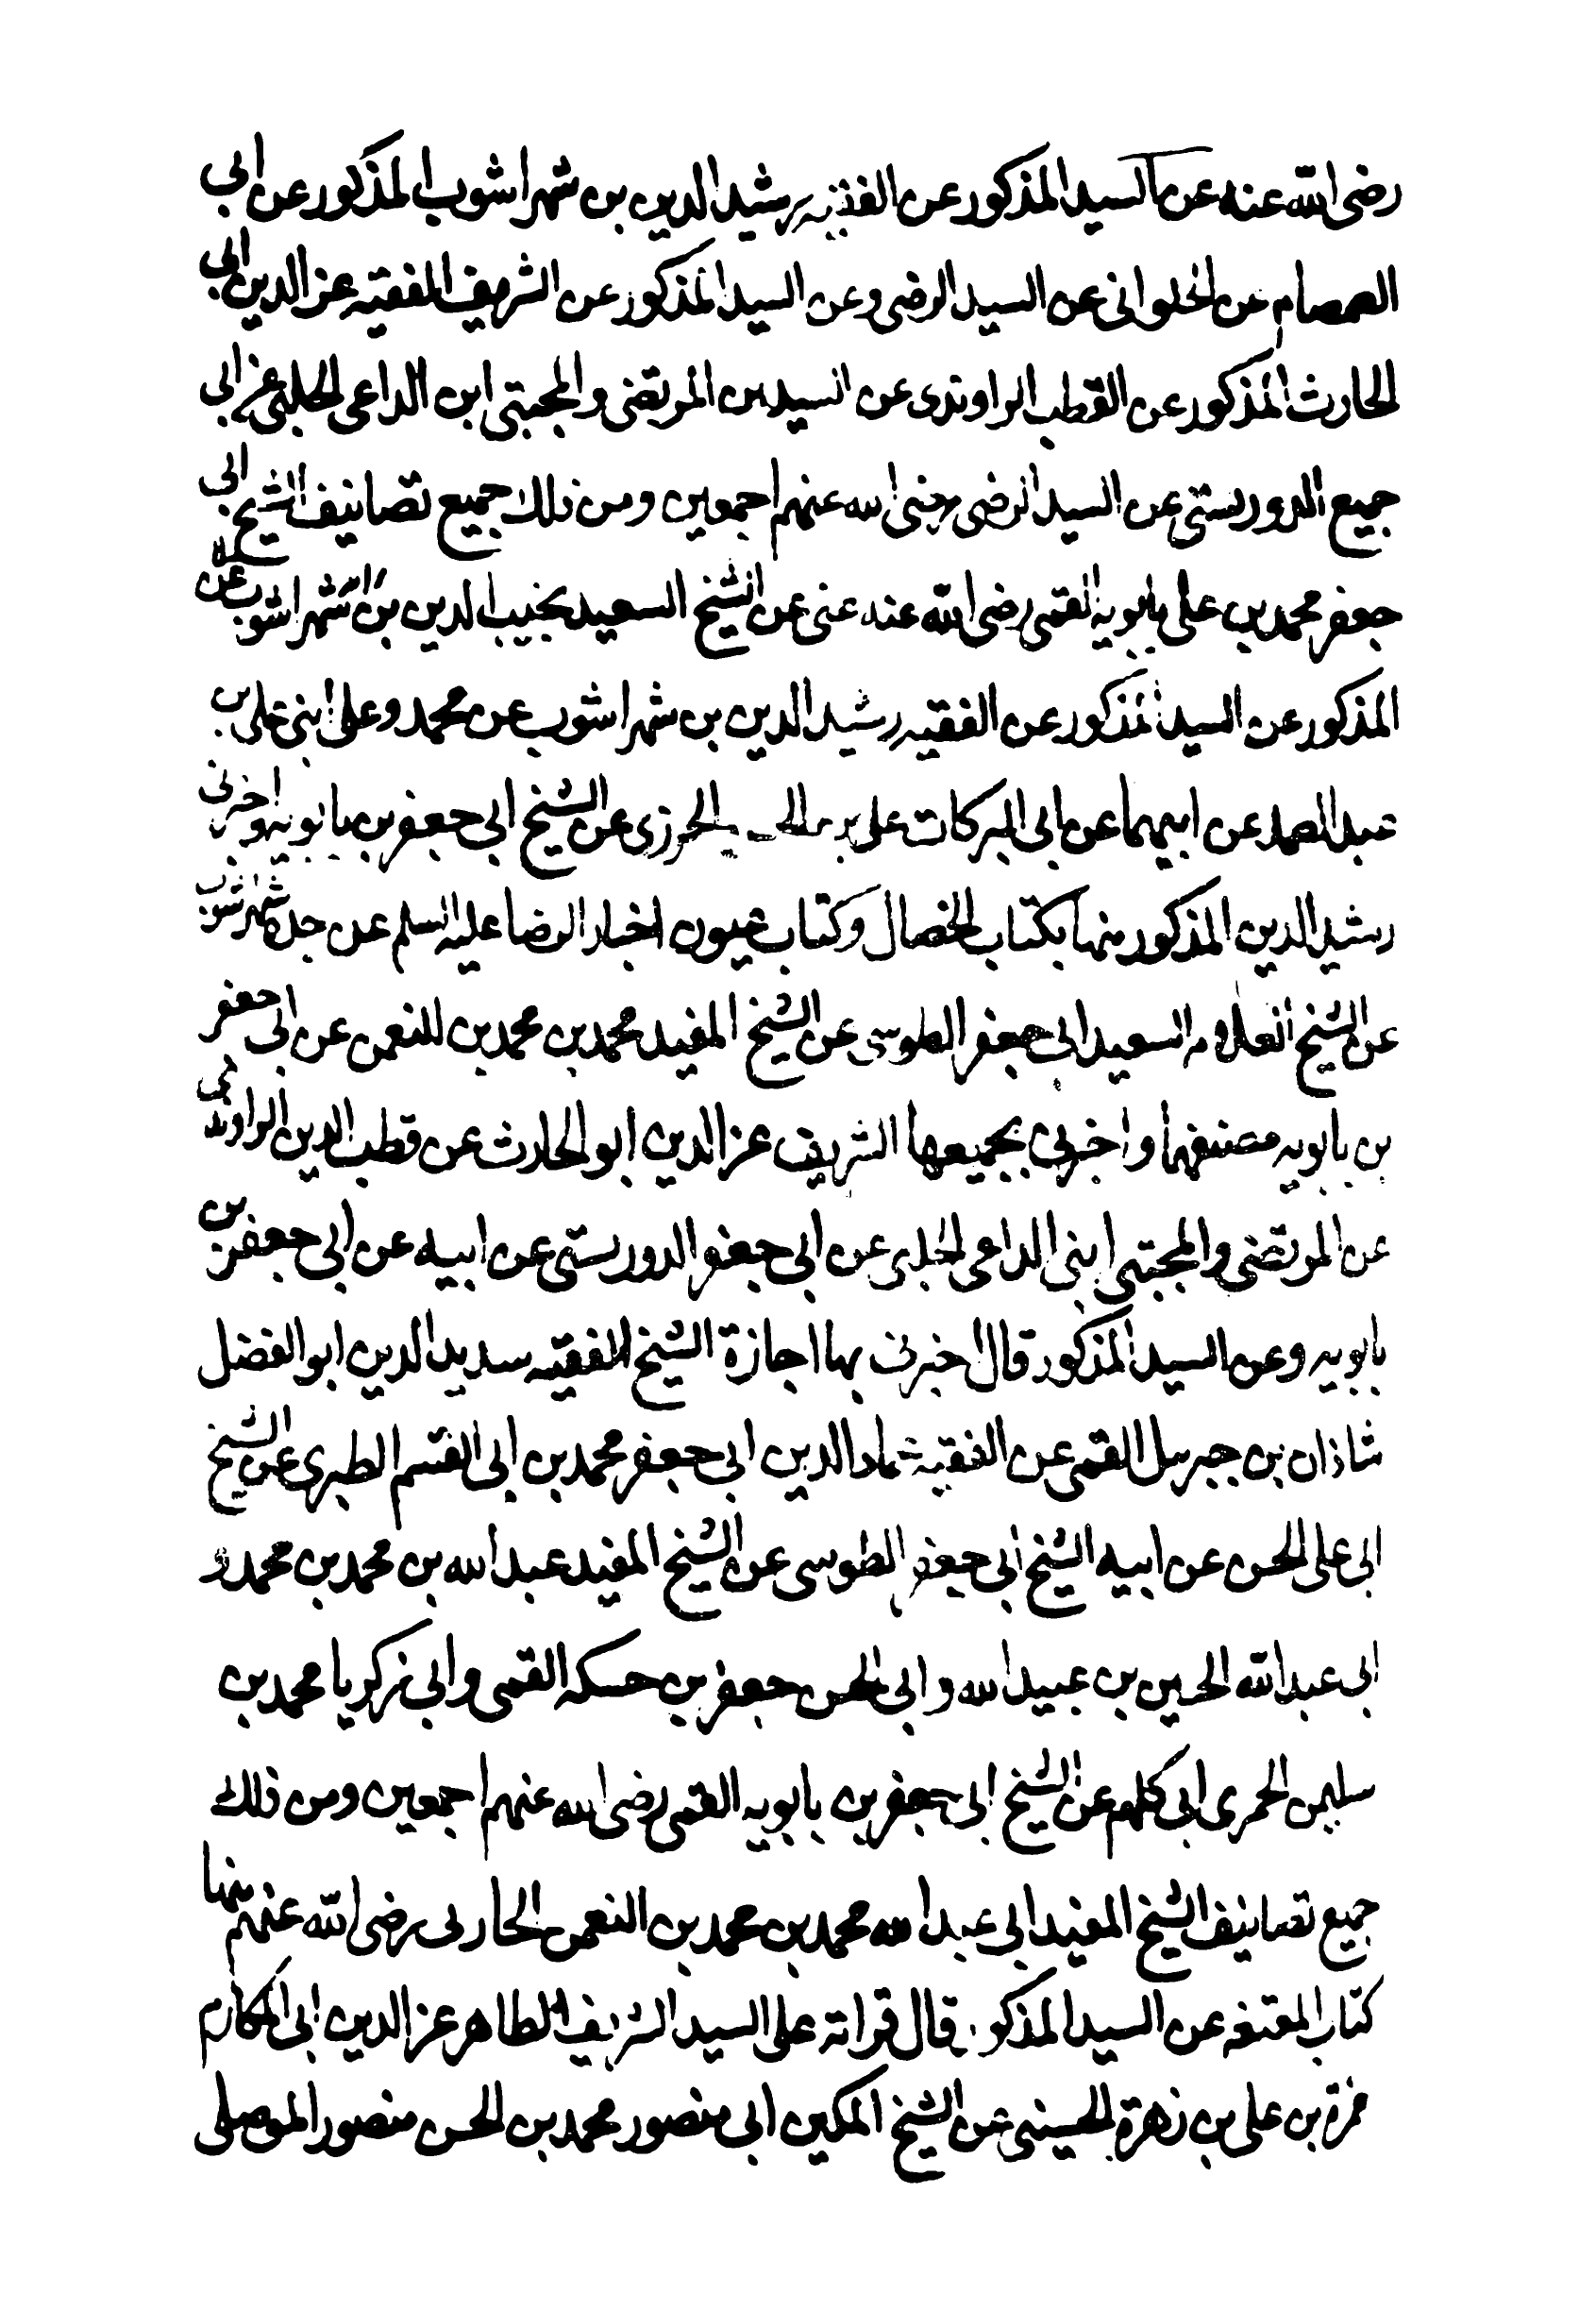 رضى الله عنه عن السيد المذكور عن الفقيه رشيد الدين بن شهراشوب المذكور عن ابي
الصمصام عن الحلواني عن السيد الرضى وعن السيد المذكور عن الشريف الفقيه عز الدين ابي
الحارث المذكور عن القطب الراوندى عن السيدين المرتضى والمجتبى ابن الداعى الحلبى عن ابي
جميع الدوريستى عن السيد الرضى رضى الله عنهم اجمعين ومن ذلك جميع تصانيف الشيخ ابي
جعفر محمد بن على بابويه القمى رضى الله عنه عنى عن الشيخ السعيد نجيب الدين بن شهراشوب
المذكور عن السيد المذكور عن الفقيه رشيد الدين بن شهراشوب عن محمد وعلى ابنى على بن
عبد الصمد عن ابيهما عن ابى البركات على بن الخوزى عن الشيخ ابى جعفر بن بابويه واخبرنى
رشيد الدين المذكور منها بكتاب الخصال وكتاب عيون اخبار الرضا عليه السلم عن جده شهراشوب
عن الشيخ العلامه السعيد ابى جعفر الطوسى عن الشيخ المفيد محمد بن محمد بن النعمن عن ابى جعفر
بن بابويه مصنفهما واخبرنى بجميعها الشريف عز الدين ابو الحارث عن قطب الدين الراوندى
عن المرتضى والمجتبى ابنى الداعى الحلبى عن ابى جعفر الدوريستى عن ابيه عن ابى جعفر بن
بابويه وعن السيد المذكور قال اخبرنى بها اجازة الشيخ الفقيه سديد الدين ابو الفضل
شاذان بن جبريل القمى عن الفقيه عماد الدين ابى جعفر محمد بن ابى القسم الطبرى عن الشيخ
ابى على الحسن عن ابيه الشيخ ابى جعفر الطوسى عن الشيخ المفيد عبد الله بن محمد بن محمد و
ابى عبد الله الحسين بن عبيد الله وابى الحسن جعفر بن حسكه القمى وابى زكريا محمد بن
سليمن الحمرى ابى كلهم عن الشيخ ابى جعفر بن بابويه القمى رضى الله عنهم اجمعين ومن ذلك
جميع تصانيف الشيخ المفيد ابى عبد الله محمد بن محمد بن النعمن الحارثى رضى الله عنهم منها
كتاب المقنعه عن السيد المذكور قال قراته على السيد الشريف الطاهر عز الدين ابى المكارم
حمزة بن على بن زهرة الحسينى عن الشيخ المكين ابى منصور محمد بن الحسن منصور الموصلى